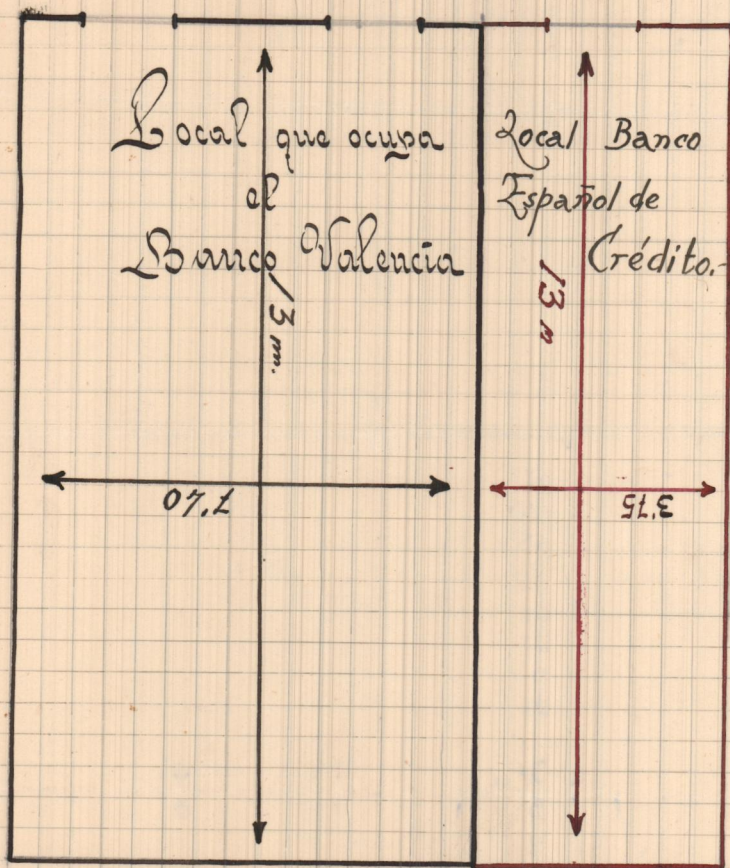 Local que ocupa
el
Banco Valencia
13 m.
Local Banco
Español de
Crédito.-
13 m
3'75